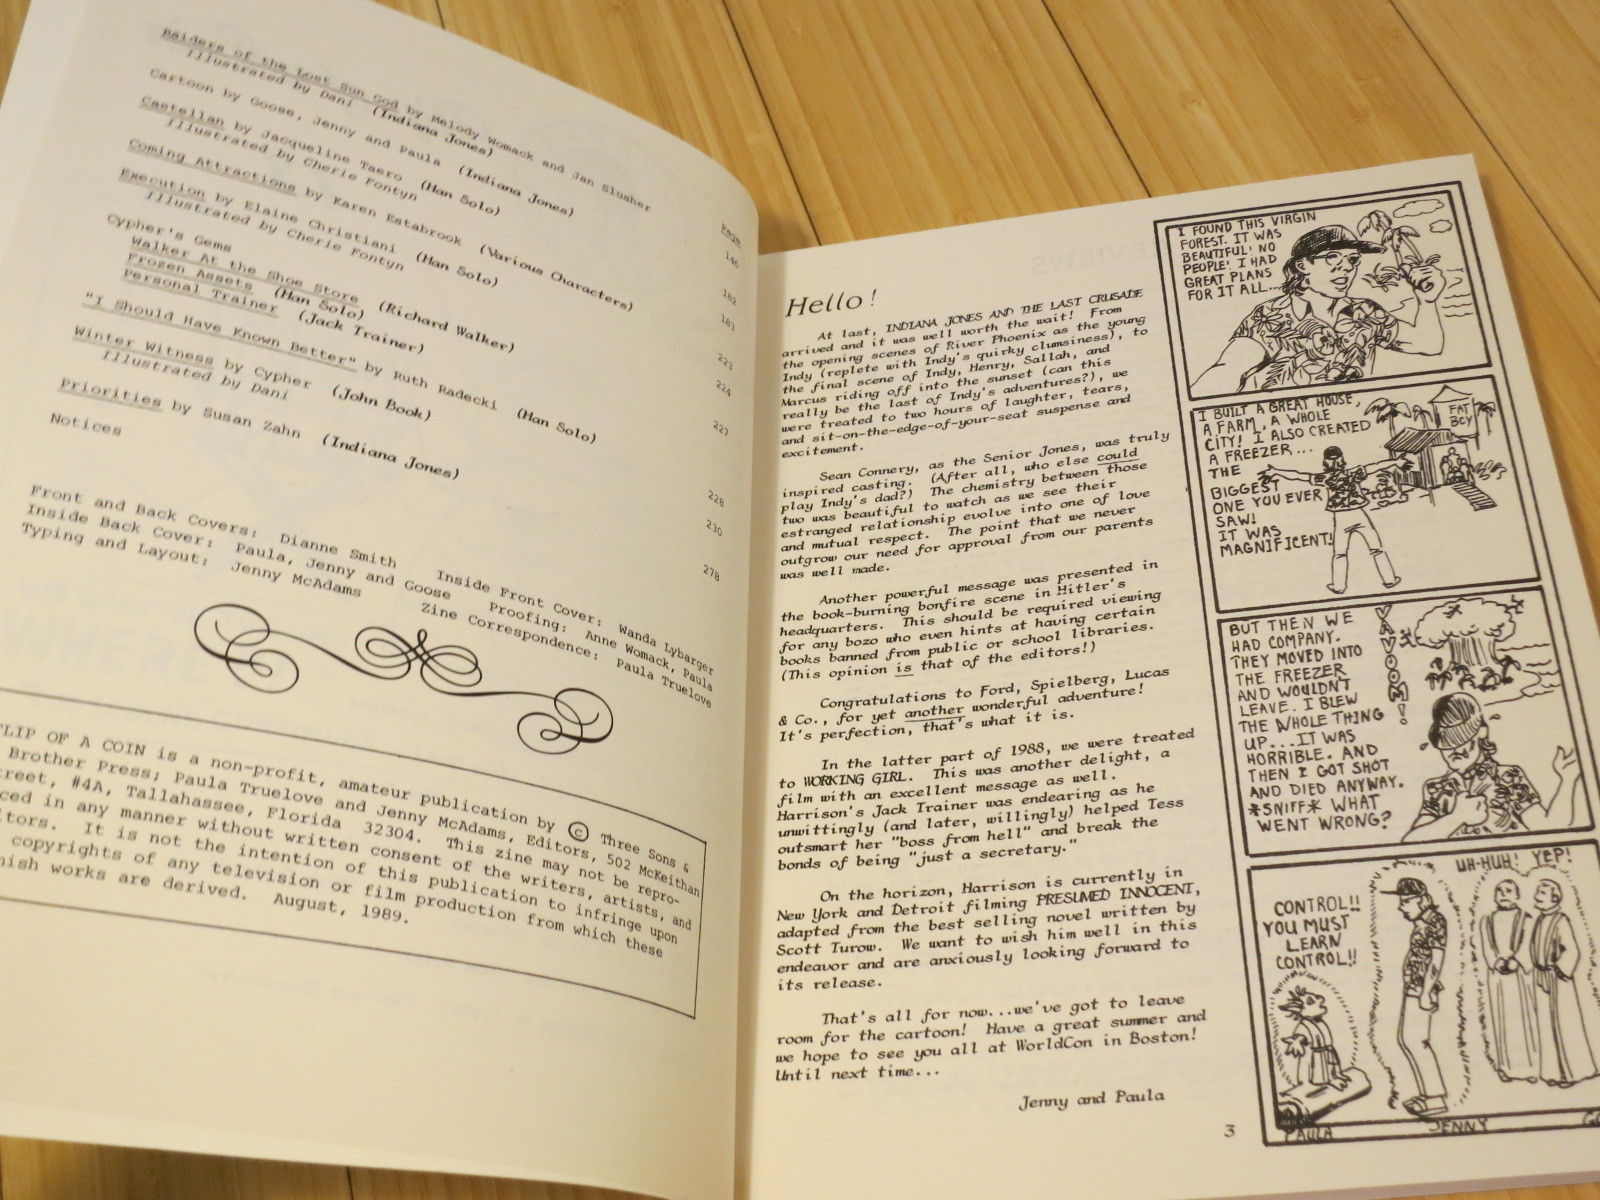 Raiders of the Lost Sun God by Melody Womack and Jan Slusher
Illustrated by Dani (Indiana Jones)
Cartoon by Goose, Jenny and Paula (Indiana Jones)
Castellan by Jacqueline Taero (Han Solo)
Illustrated by Cherie Fontyn
Coming Attractions by Karen Estabrook (Various Characters)
Execution by Elaine Christiani (Han Solo)
Illustrated by Cherie Fontyn
Cypher's Gems
Walker At the Shoe Store (Richard Walker)
Frozen Assets (Han Solo)
Personal Trainer (Jack Trainer)
"I Should Have Known Better" by Ruth Radecki (Han Solo)
Winter Witness by Cypher (John Book)
Illustrated by Dani
Priorities by Susan Zahn (Indiana Jones)
Notices
Page
146
182
183
223
224
227
228
230
278
Front and Back Covers: Dianne Smith Inside Front Cover: Wanda Lybarger
Inside Back Cover: Paula, Jenny and Goose Proofing: Anne Womack, Paula
Typing and Layout: Jenny McAdams Zine Correspondence: Paula Truelove
FLIP OF A COIN is a non-profit, amateur publication by © Three Sons &
Brother Press; Paula Truelove and Jenny McAdams, Editors, 502 McKeithan
treet, #4A, Tallahassee, Florida 32304. This zine may not be repro-
ced in any manner without written consent of the writers, artists, and
tors. It is not the intention of this publication to infringe upon
copyrights of any television or film production from which these
nish works are derived. August, 1989.
Hello!
At last, INDIANA JONES AND THE LAST CRUSADE
arrived and it was well worth the wait! From
the opening scenes of River Phoenix as the young
Indy (replete with Indy's quirky clumsiness), to
the final scene of Indy, Henry, Sallah, and
Marcus riding off into the sunset (can this
really be the last of Indy's adventures?), we
were treated to two hours of laughter, tears,
and sit-on-the-edge-of-your-seat suspense and
excitement.
Sean Connery, as the Senior Jones, was truly
inspired casting. (After all, who else could
play Indy's dad?) The chemistry between those
two was beautiful to watch as we see their
estranged relationship evolve into one of love
and mutual respect. The point that we never
outgrow our need for approval from our parents
was well made.
Another powerful message was presented in
the book-burning bonfire scene in Hitler's
headquarters. This should be required viewing
for any bozo who even hints at having certain
books banned from public or school libraries.
(This opinion is that of the editors!)
Congratulations to Ford, Spielberg, Lucas
& Co., for yet another wonderful adventure!
It's perfection, that's what it is.
In the latter part of 1988, we were treated
to WORKING GIRL. This was another delight, a
film with an excellent message as well.
Harrison's Jack Trainer was endearing as he
unwittingly (and later, willingly) helped Tess
outsmart her "boss from hell" and break the
bonds of being "just a secretary."
On the horizon, Harrison is currently in
New York and Detroit filming PRESUMED INNOCENT,
adapted from the best selling novel written by
Scott Turow. We want to wish him well in this
endeavor and are anxiously looking forward to
its release.
That's all for now...we've got to leave
room for the cartoon! Have a great summer and
we hope to see you all at WorldCon in Boston!
Until next time...
Jenny and Paula
3
I FOUND THIS VIRGIN
FOREST. IT WAS
BEAUTIFUL! NO
PEOPLE! I HAD
GREAT PLANS
FOR IT ALL...
I BUILT A GREAT HOUSE,
A FARM, A WHOLE
CITY! I ALSO CREATED
A FREEZER...
THE
BIGGEST
ONE YOU EVER
SAW!
IT WAS
MAGNIFICENT!
FAT
BOY
BUT THEN WE
HAD COMPANY.
THEY MOVED INTO
THE FREEZER
AND WOULDN'T
LEAVE. I BLEW
THE WHOLE THING
UP...IT WAS
HORRIBLE. AND
THEN I GOT SHOT
AND DIED ANYWAY.
*SNIFF* WHAT
WENT WRONG?
VAVOOM!
CONTROL!!
YOU MUST
LEARN
CONTROL!!
UH-HUH! YEP!
PAULA
JENNY